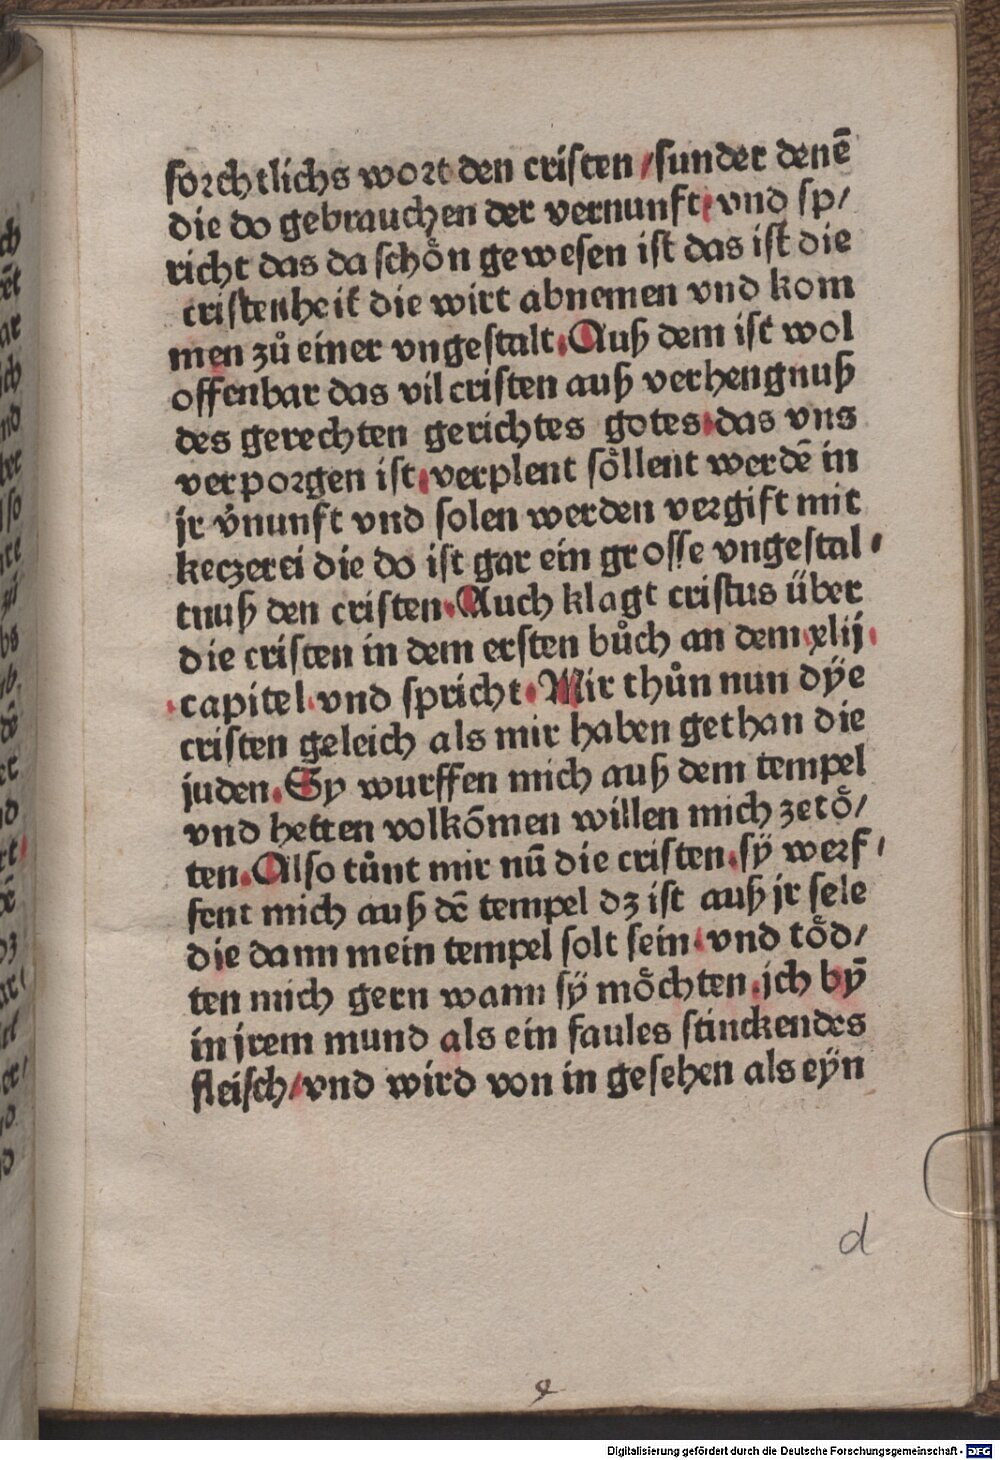 forchtlichs wort den cristen / sunder denē
die do gebrauchen der vernunft / vnd sp/
richt das da schoͤn gewesen ist das ist die
cristenheit die wirt abnemen vnd kom
men zů einer vngestalt. Auß dem ist wol
offenbar das vil cristen auß verhengnuß
des gerechten gerichtes gotes. das vns
verporgen ist. verplent soͤllent werdē in
jr v̄nunft vnd solen werden vergift mit
keczerei die do ist gar ein grosse vngestal /
tnuß den cristen. Auch klagt cristus über
die cristen in dem ersten bůch an dem xlij.
.capitel. vnd spricht. Mir thůn nun dÿe
cristen geleich als mir haben gethan die
juden. Sy wurffen mich auß dem tempel
vnd hetten volkōmen willen mich zetoͤ/
ten. Also tůnt mir nū die cristen. sÿ werf /
fent mich auß dē tempel dz ist auß jr sele
die dann mein tempel solt sein. vnd toͤd/
ten mich gern wann sÿ moͤchten. ich bȳ
in jrem mund als ein faules stinckendes
fleisch / vnd wird von in gesehen als eÿn
d
Digitalisierung gefördert durch die Deutsche Forschungsgemeinschaft - DFG